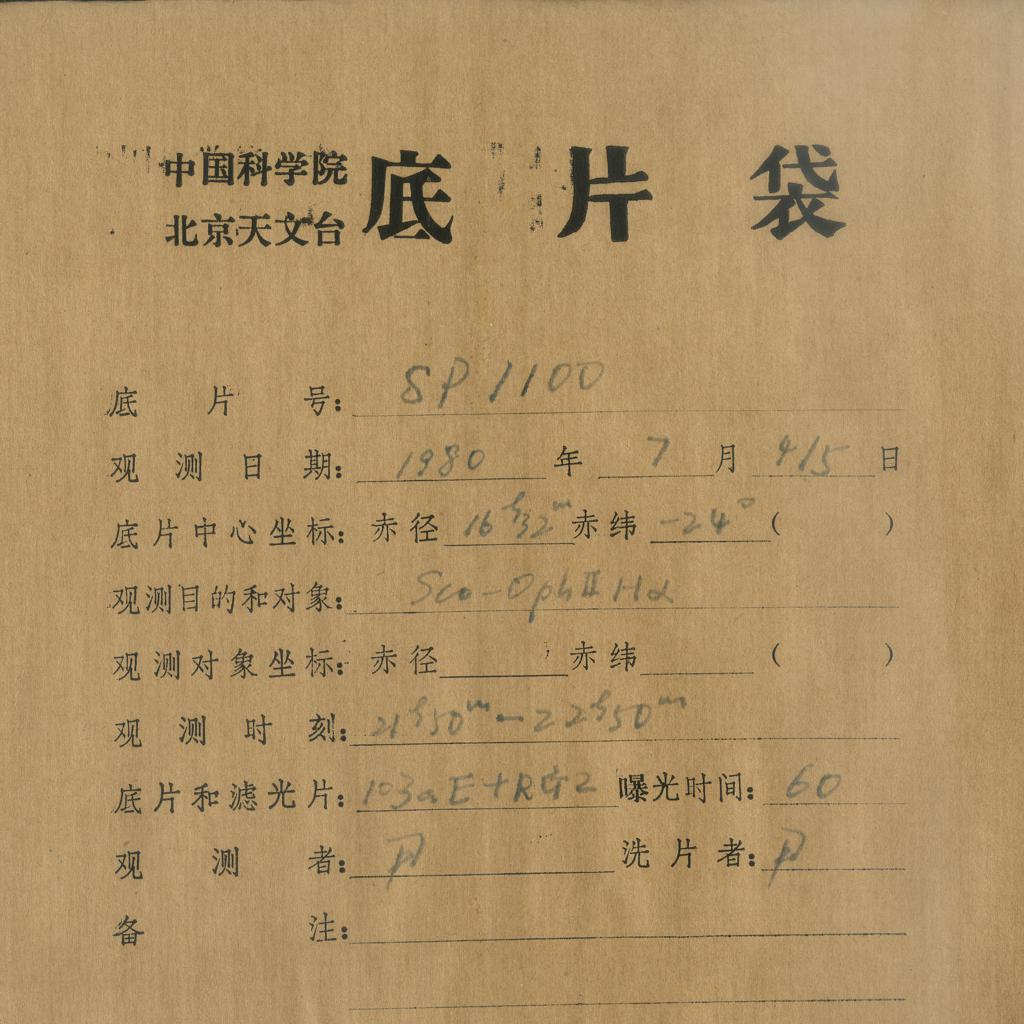 中国科学院
北京天文台
底片袋
底片号: SP 1100
观测日期: 1980 年 7 月 4/5 日
底片中心坐标: 赤径 16ʰ32ᵐ 赤纬 -24° ( )
观测目的和对象: Sco-Oph II Hα
观测对象坐标: 赤径 赤纬 ( )
观测时刻: 21ʰ50ᵐ - 22ʰ50ᵐ
底片和滤光片: 103aE+RG2 曝光时间: 60
观测者: 洗片者:
备注: